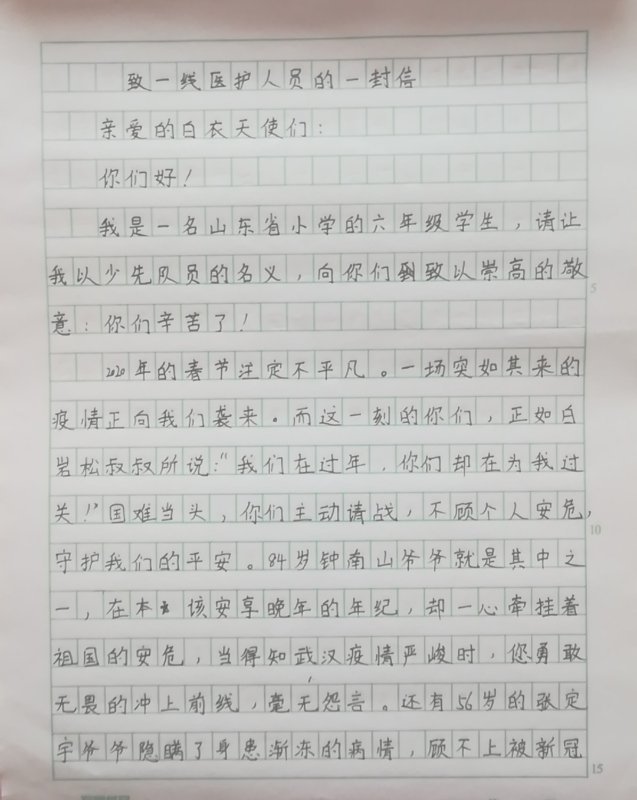 致一线医护人员的一封信
亲爱的白衣天使们：
你们好！
我是一名山东省小学的六年级学生，请让
我以少先队员的名义，向你们致以崇高的敬
意：你们辛苦了！
2020年的春节注定不平凡。一场突如其来的
疫情正向我们袭来。而这一刻的你们，正如白
岩松叔叔所说：“我们在过年，你们却在为我过
关！”国难当头，你们主动请战，不顾个人安危，
守护我们的平安。84岁钟南山爷爷就是其中之
一，在本该安享晚年的年纪，却一心牵挂着
祖国的安危，当得知武汉疫情严峻时，您勇敢
无畏的冲上前线，毫无怨言。还有56岁的张定
宇爷爷隐瞒了身患渐冻的病情，顾不上被新冠
5
10
15